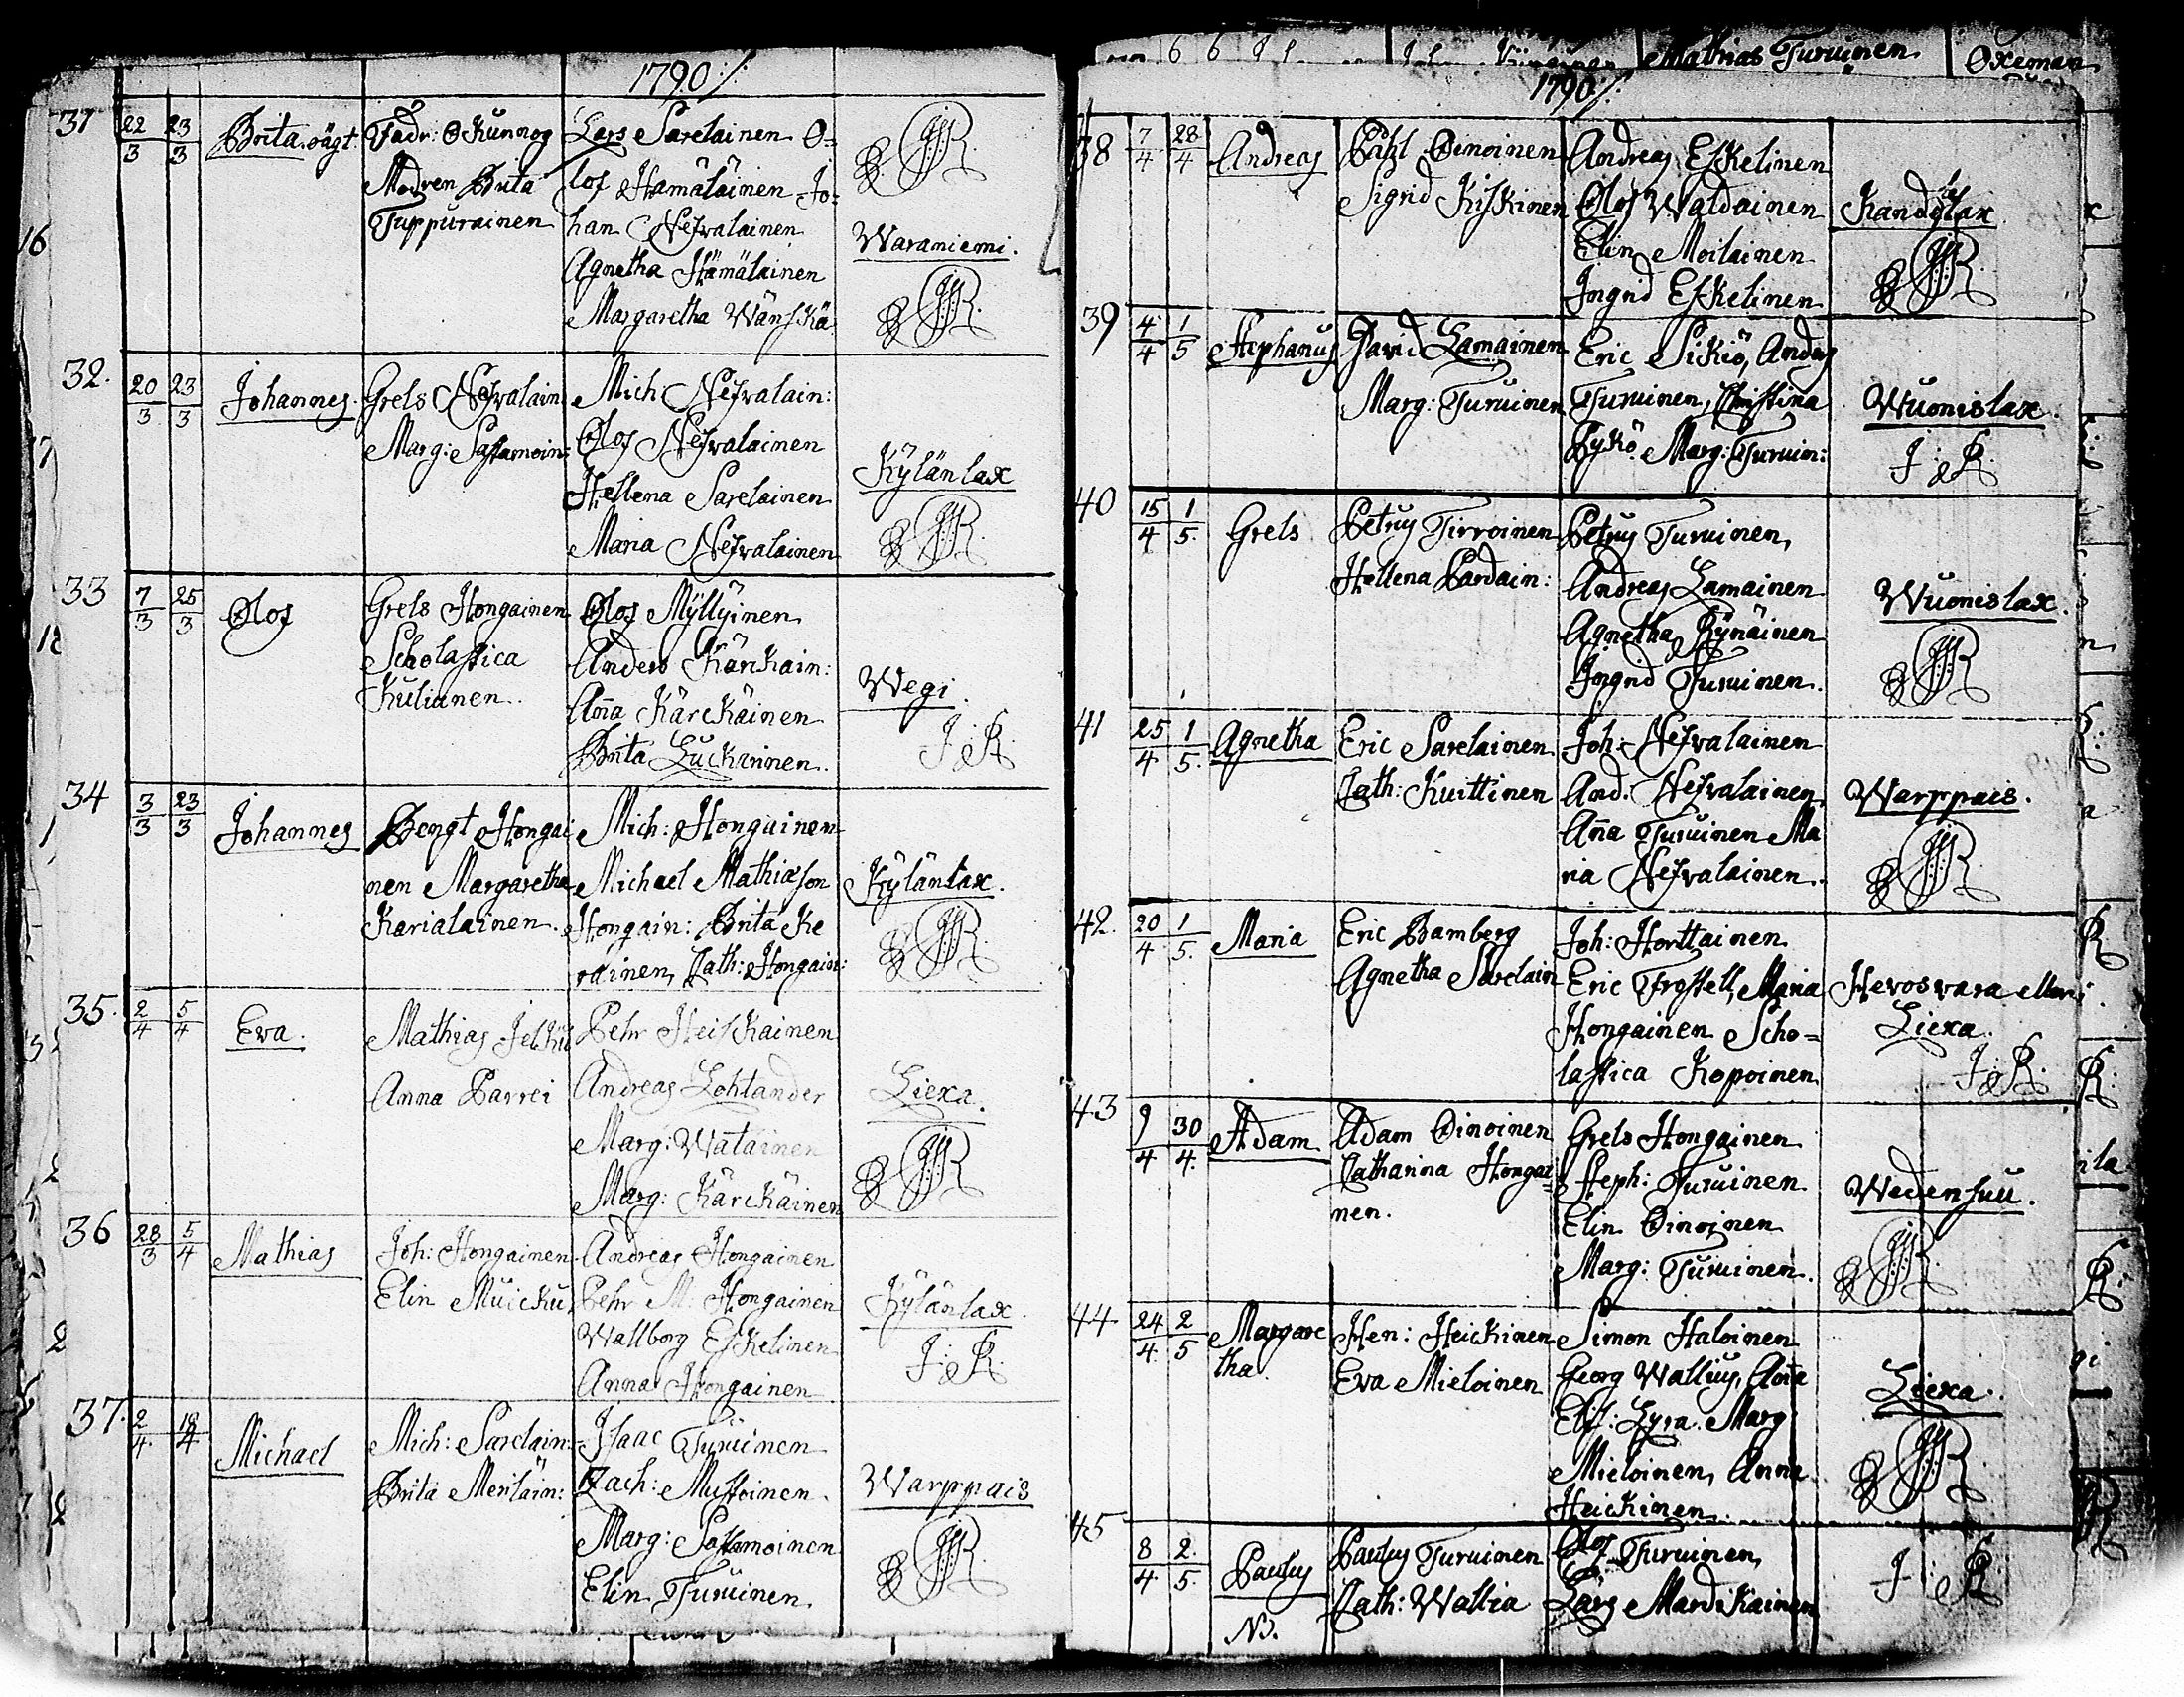 1790 ·/·
31 22/3 23/3 Brita oägt. Fadr: Okunnog Lars Sarelainen O=
Modren Brita lof Hämäläinen Jo=
Tuppurainen han Nefvalainen
Waraniemi.
Agnetha Hämäläinen
Margaretha Wänskä
32. 20/3 23/3 Johannes. Grels Nefvalain: Mich: Nefvalain:
Marg: Sastamoin: Olof Nefvalainen
Kylänlax
Hellena Sarelainen
Maria Nefvalainen
33 7/3 25/3 Olof Grels Hongainen Olof Myllyinen
Scholastica Anders Kärckäin:
Kulianen. Wegi.
Aña Kärckäinen
Brita Luckarinen. J: R:
34 3/3 23/3 Johannes Bengt Hongai Mich: Hongainen
nen Margaretha Michael Mathiæson Kylänlax.
Karialainen. Hongain: Brita Ke
rainen, Cath: Hongain:
35. 2/4 5/4 Eva. Mathias Behr Heiskainen
Anna Parrei Andreas Lohlander Liexa.
Marg: Watainen
Marg: Kärckäinen
36 28/3 5/4 Mathias Joh: Hongainen Andreas Hongainen
Elin Muicku Pehr M: Hongainen Kylänlax.
Wallborg Eskelinen
J: R:
Anna Hongainen
37. 2/4 18/4 Michael Mich: Sarelain: Isaac Turuinen
Brita Meriläin: Zach: Mustoinen. Warppais
Marg: Sastamoinen
Elin Turuinen.
Mathias Turuinen Oxeman
1790 ·/·
38 7/4 28/4 Andreas Påhl Oinoinen Andreas Eskelinen
Sigrid Kiskinen Olof Waldainen Kandolax
Elin Moilainen
Ingrid Eskelinen
39 4/4 1/5 Stephanus David Lamainen Eric Sikiö, Andrs
Marg: Turuinen Turuinen, Christina Wuonislax.
Pykö. Marg: Turuin: J: R:
40 15/4 1/5. Grels Petrus Tirroinen Petrus Turuinen,
Hellena Pardain: Andreas Lamainen Wuonislax.
Agnetha Rynäinen
Ingrid Turuinen.
41 25/4 1/5. Agnetha Eric Sarelainen Joh: Nefvalainen
Cath: Kuittinen And: Nefvalainen Warppais.
Aña Turuinen Ma
ria Nefvalainen.
42. 20/4 1/5. Maria Eric Bamberg Joh: Horttainen
Agnetha Sarelain Eric Frostell, Maria Hevosvara
Hongainen Scho= Liexa.
lastica Kopoinen J: R:
43 9/4 30/4. Adam Adam Oinoinen Grels Hongainen
Catharina Hongai= Steph: Turuinen Wedensuu.
nen. Elin Oinoinen
Marg: Turuinen.
44. 24/4. 2/5 Margare Hen: Heickinen Simon Haloinen
tha. Eva Mieloinen Georg Wallius, Aña Liexa.
Elis: Lyra. Marg:
Mieloinen, Anna
Heickinen
45 8/4. 2./5. Paulus Paulus Turuinen Olof Turuinen, J: R:
Cath: Wallia Lars Mardikainen
NB.